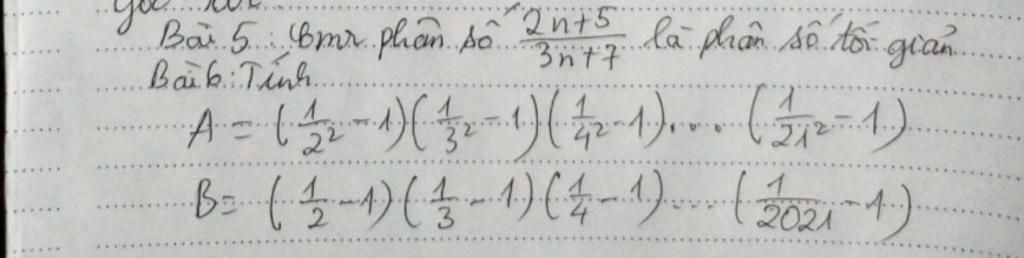 Bài 5: Cmr phân số \frac{2n+5}{3n+7} là phân số tối giản
Bài 6: Tính
A = (\frac{1}{2^2} - 1)(\frac{1}{3^2} - 1)(\frac{1}{4^2} - 1).... (\frac{1}{21^2} - 1)
B = (\frac{1}{2} - 1)(\frac{1}{3} - 1)(\frac{1}{4} - 1).... (\frac{1}{2021} - 1)